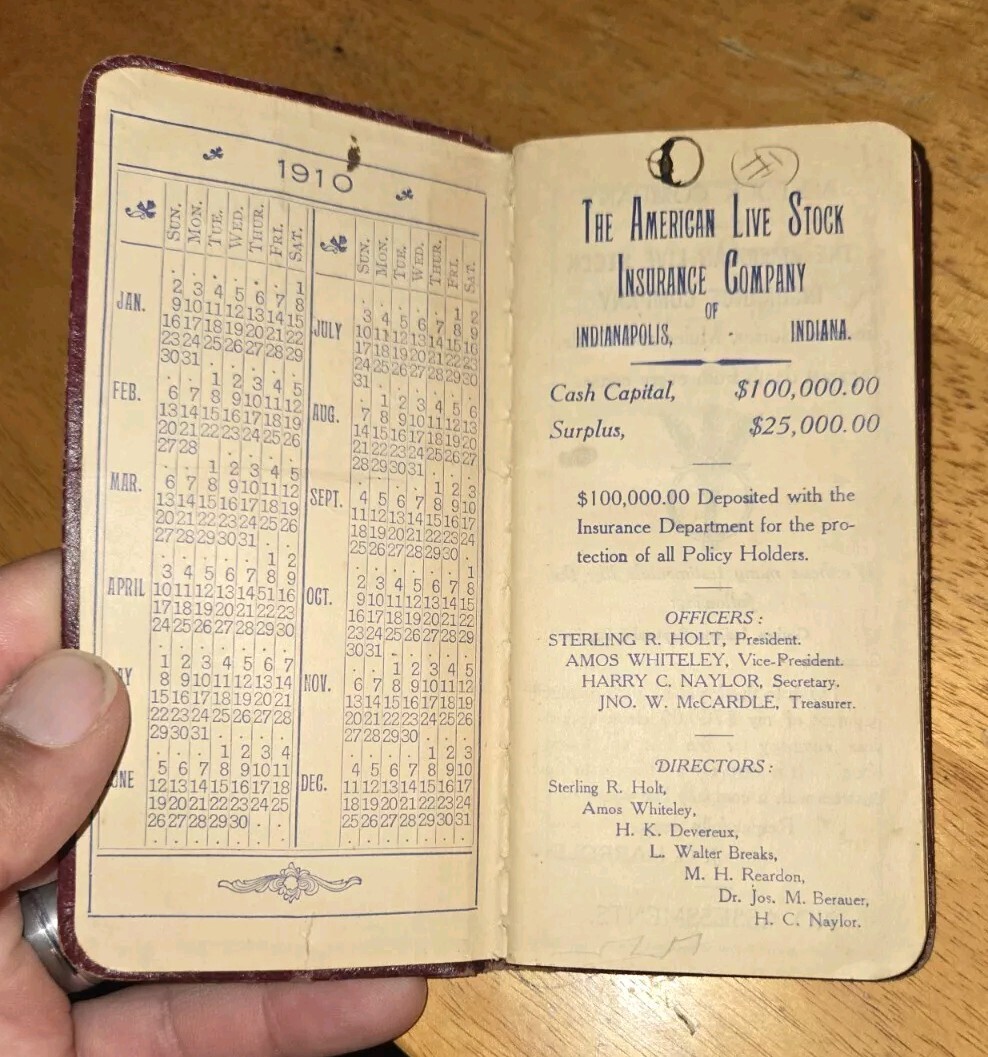 1910
SUN. MON. TUE. WED. THUR. FRI. SAT.
JAN.
1
2 3 4 5 6 7 8
9 10 11 12 13 14 15
16 17 18 19 20 21 22
23 24 25 26 27 28 29
30 31
FEB.
1 2 3 4 5
6 7 8 9 10 11 12
13 14 15 16 17 18 19
20 21 22 23 24 25 26
27 28
MAR.
1 2 3 4 5
6 7 8 9 10 11 12
13 14 15 16 17 18 19
20 21 22 23 24 25 26
27 28 29 30 31
APRIL
1 2
3 4 5 6 7 8 9
10 11 12 13 14 51 16
17 18 19 20 21 22 23
24 25 26 27 28 29 30
AY
1 2 3 4 5 6 7
8 9 10 11 12 13 14
15 16 17 18 19 20 21
22 23 24 25 26 27 28
29 30 31
UNE
1 2 3 4
5 6 7 8 9 10 11
12 13 14 15 16 17 18
19 20 21 22 23 24 25
26 27 28 29 30
SUN. MON. TUE. WED. THUR. FRI. SAT.
JULY
1 2
3 4 5 6 7 8 9
10 11 12 13 14 15 16
17 18 19 20 21 22 23
24 25 26 27 28 29 30
31
AUG.
1 2 3 4 5 6
7 8 9 10 11 12 13
14 15 16 17 18 19 20
21 22 23 24 25 26 27
28 29 30 31
SEPT.
1 2 3
4 5 6 7 8 9 10
11 12 13 14 15 16 17
18 19 20 21 22 23 24
25 26 27 28 29 30
OCT.
1
2 3 4 5 6 7 8
9 10 11 12 13 14 15
16 17 18 19 20 21 22
23 24 25 26 27 28 29
30 31
NOV.
1 2 3 4 5
6 7 8 9 10 11 12
13 14 15 16 17 18 19
20 21 22 23 24 25 26
27 28 29 30
DEC.
1 2 3
4 5 6 7 8 9 10
11 12 13 14 15 16 17
18 19 20 21 22 23 24
25 26 27 28 29 30 31
THE AMERICAN LIVE STOCK
INSURANCE COMPANY
OF
INDIANAPOLIS, - INDIANA.
Cash Capital, $100,000.00
Surplus, $25,000.00
$100,000.00 Deposited with the
Insurance Department for the pro-
tection of all Policy Holders.
OFFICERS:
STERLING R. HOLT, President.
AMOS WHITELEY, Vice-President.
HARRY C. NAYLOR, Secretary.
JNO. W. McCARDLE, Treasurer.
DIRECTORS:
Sterling R. Holt,
Amos Whiteley,
H. K. Devereux,
L. Walter Breaks,
M. H. Reardon,
Dr. Jos. M. Berauer,
H. C. Naylor.